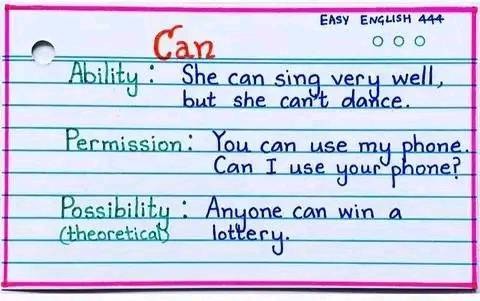 EASY ENGLISH 444
Can
Ability : She can sing very well,
but she can't dance.
Permission : You can use my phone.
Can I use your phone?
Possibility : Anyone can win a
(theoretical) lottery.